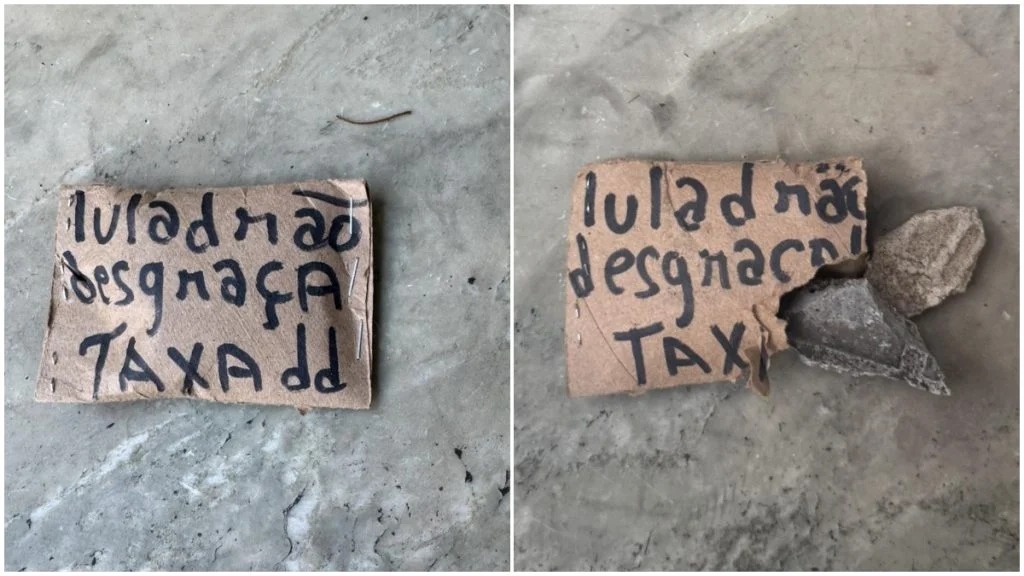 luladrão
desgraçA
TAXA dd
luladrão
desgraça
TAX